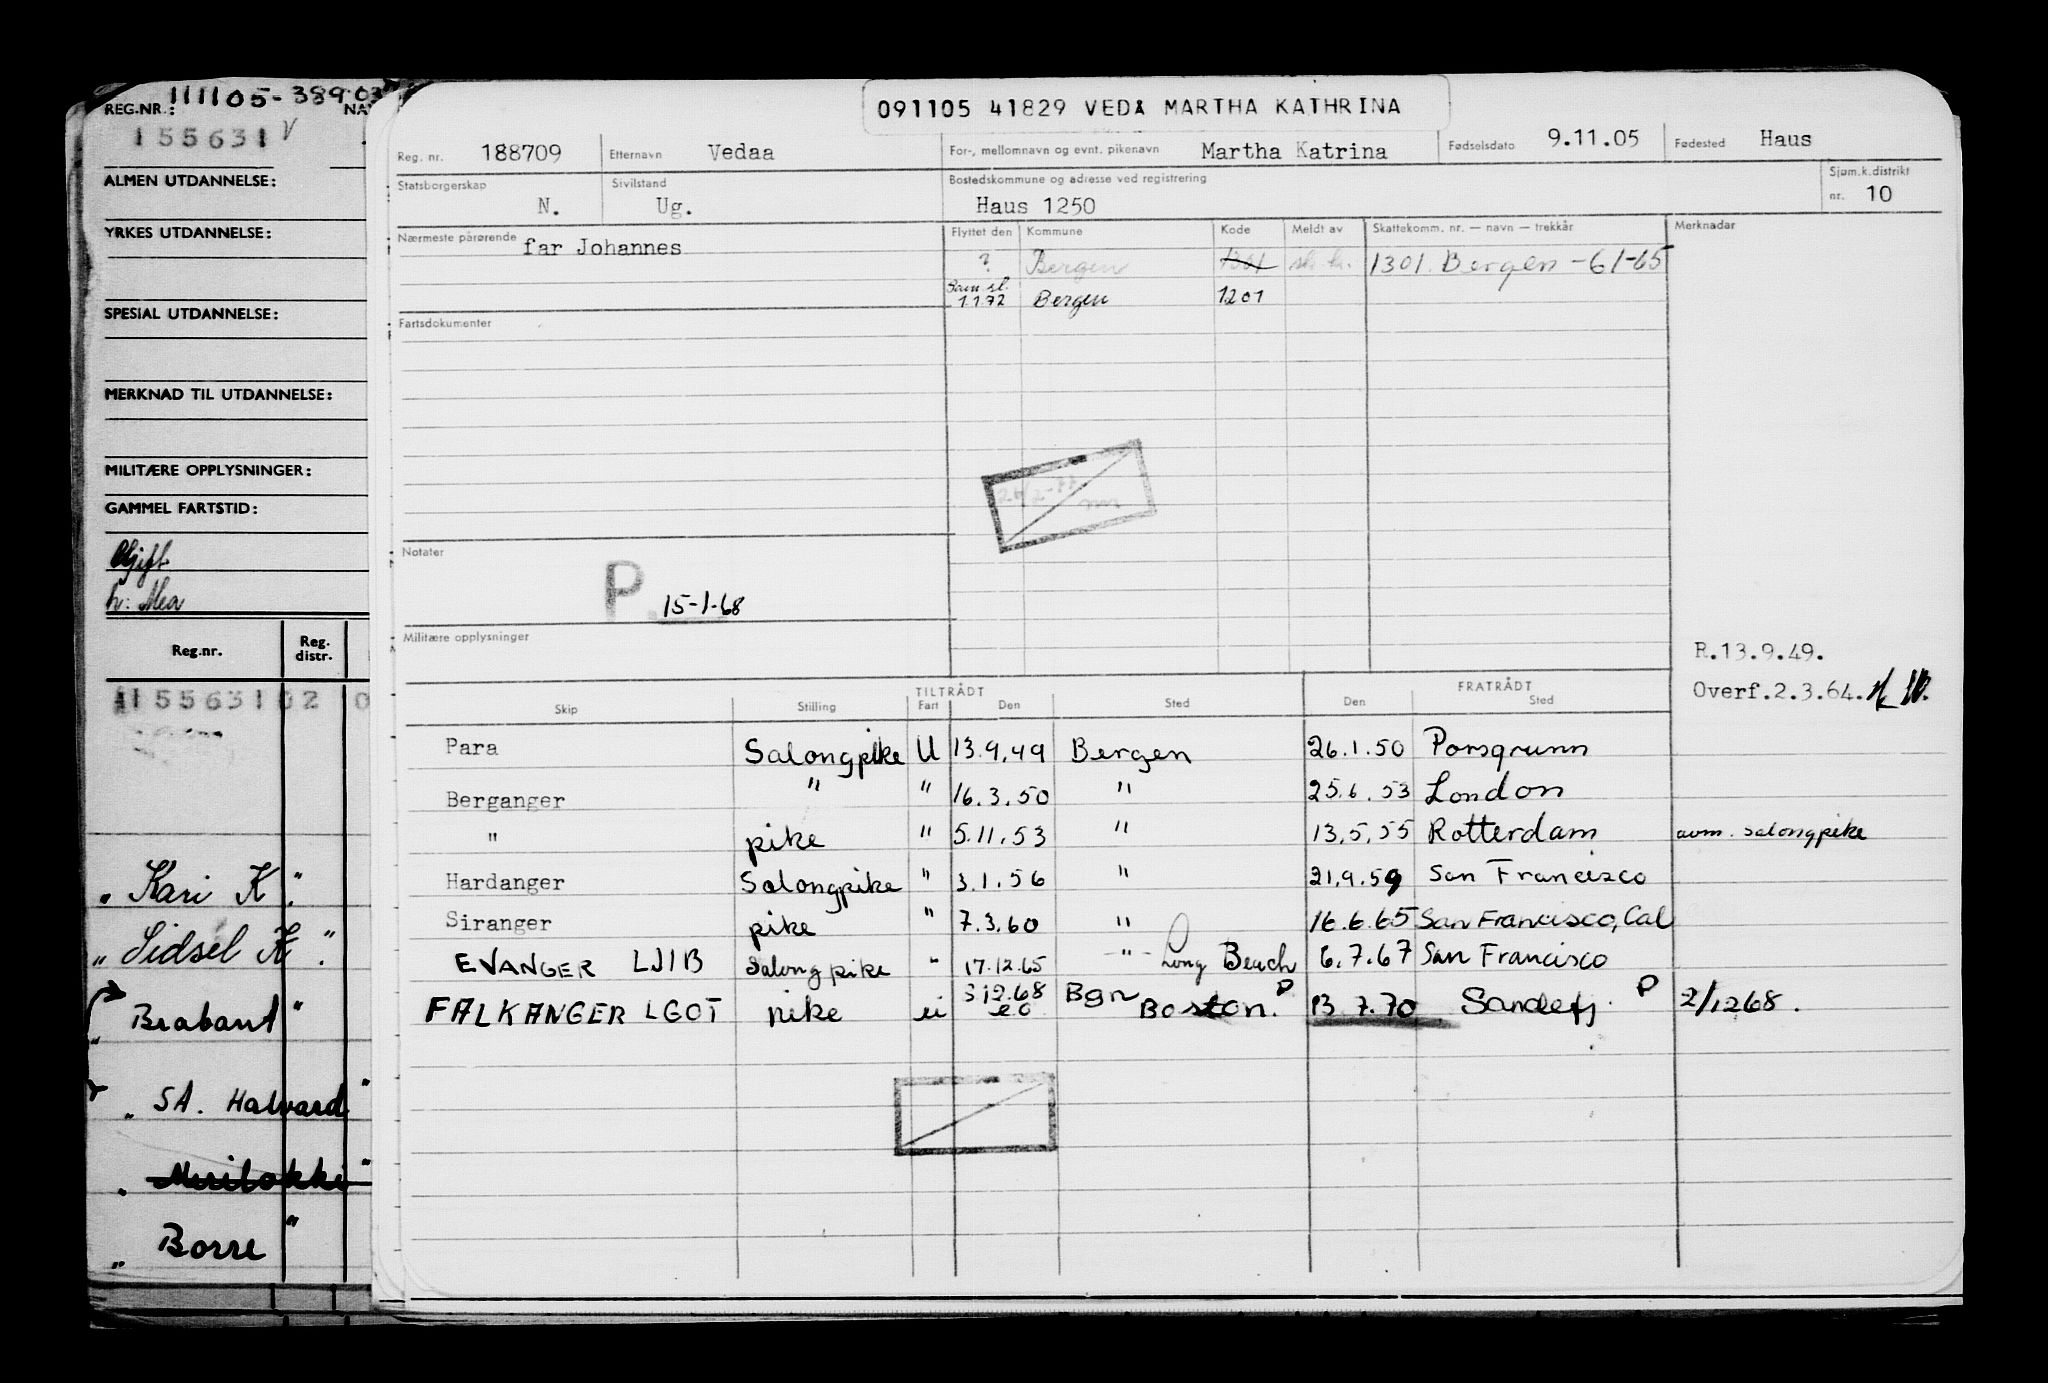 REG.NR.: 111105-389
155631 V
ALMEN UTDANNELSE:
YRKES UTDANNELSE:
SPESIAL UTDANNELSE:
MERKNAD TIL UTDANNELSE:
MILITÆRE OPPLYSNINGER:
GAMMEL FARTSTID:
Gift.
h: Mea
Reg.nr. Reg. distr.
155631 02 0
" Kari K "
" Sidsel K "
" Brabant "
" SA. Halvard "
" Borre "
091105 41829 VEDA MARTHA KATHRINA
Reg. nr. 188709 Etternavn Vedaa For-, mellomnavn og evnt. pikenavn Martha Katrina Fødselsdato 9.11.05 Fødested Haus
Statsborgerskap N. Sivilstand Ug. Bostedskommune og adresse ved registrering Haus 1250 Sjøm.k.distrikt nr. 10
Nærmeste pårørende far Johannes Flyttet den Kommune Kode Meldt av Skattekomm. nr. — navn — trekkår Merknader
? Bergen 1301 sk.k. 1301 Bergen - 61-65
Sam.sl. 1.1.72 Bergen 1201
Fartsdokumenter
Notater
P 15-1-68
Militære opplysninger
R.13.9.49.
Overf.2.3.64.
TILTRÅDT FRATRÅDT
Skip Stilling Fart Den Sted Den Sted
Para Salongpike U 13.9.49 Bergen 26.1.50 Porsgrunn
Berganger " " 16.3.50 " 25.6.53 London
" pike " 5.11.53 " 13.5.55 Rotterdam avm. salongpike
Hardanger Salongpike " 3.1.56 " 21.9.59 San Francisco
Siranger pike " 7.3.60 " 16.6.65 San Francisco, Cal
EVANGER LJIB Salongpike " 17.12.65 " Long Beach 6.7.67 San Francisco
FALKANGER LGOT pike u 312.68 Bgn Boston. P 13.7.70 Sandefj. P 2/1268.